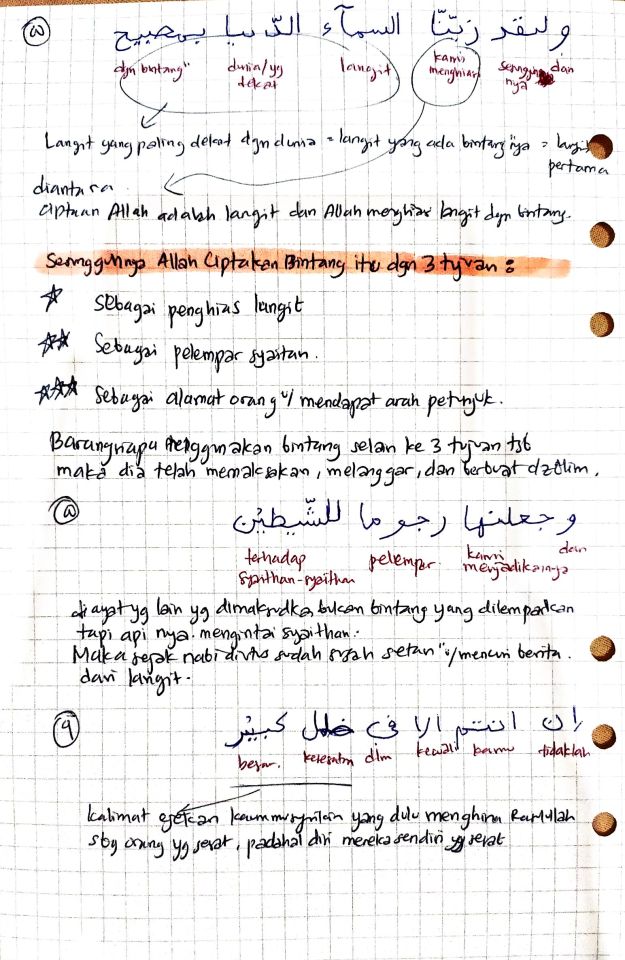 @ ولقد زيّنّا السمآء الدّنيا بمصبيح
dgn bintang" dunia/yg langit kami sesungguh dan
dekat menghiasi nya
Langit yang paling dekat dgn dunia = langit yang ada bintang"nya = langit
pertama
diantara
ciptaan Allah adalah langit dan Allah menghias langit dgn bintang.
Sesungguhnya Allah Ciptakan Bintang itu dgn 3 tujuan :
☆ Sebagai penghias langit
☆☆ Sebagai pelempar syaitan.
☆☆☆ Sebagai alamat orang u/ mendapat arah petunjuk.
Barangsiapa menggunakan bintang selain ke 3 tujuan tsb
maka dia telah memaksakan, melanggar, dan berbuat dzolim.
@ وجعلنها رجوما للشّيطين
terhadap pelempar kami dan
syaithan-syaithan menjadikannya
di ayat yg lain yg dimaksudkan bukan bintang yang dilemparkan
tapi api nya. mengintai syaithan.
Maka sejak nabi diutus sudah susah setan" u/ mencuri berita
dari langit.
9 إن انتم الا في ضلل كبير
besar. kesesatan dlm kecuali kamu tidaklah
kalimat ejekan kaum musyrikin yang dulu menghina Rasulullah
sbg orang yg sesat, padahal diri mereka sendiri yg sesat